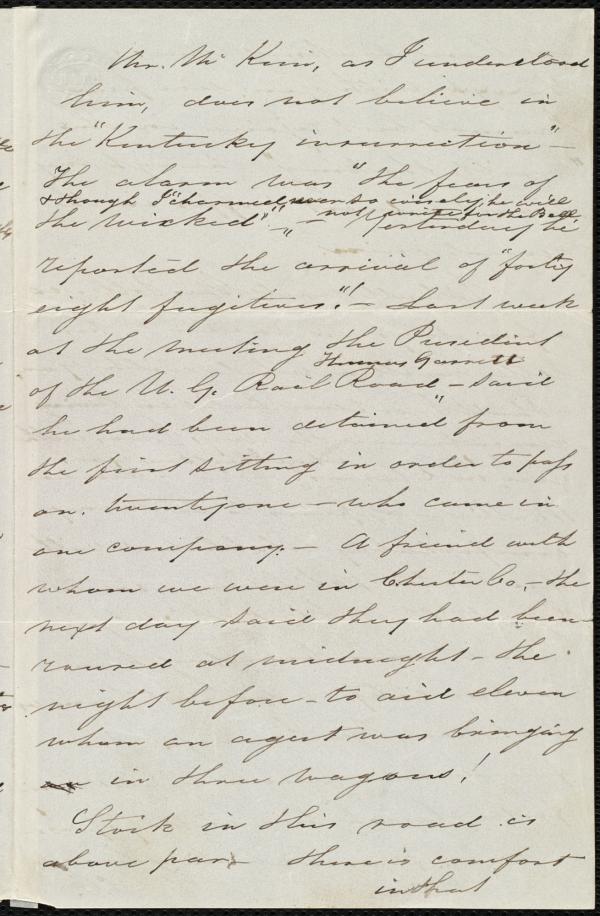 Mr. Mc Kim, as I understood
him, does not believe in
the "Kentucky insurrection" -
The alarm was "the fears of
& though I "charmed ever so wisely, he will
not write for the Bell.
the wicked" - Yesterday he
reported the arrival of "forty
eight fugitives"! - Last week
at the meeting the President
Thomas Garrett
of the U. G. Rail Road - said
he had been detained" from
the first sitting in order to pass
on. twentyone - who came in
one company. - A friend with
whom we were in Chester Co, - the
next day said they had been
roused at midnight - the
night before - to aid eleven
whom an agent was bringing
in three wagons!
Stock in this road is
above par - there is comfort
in that